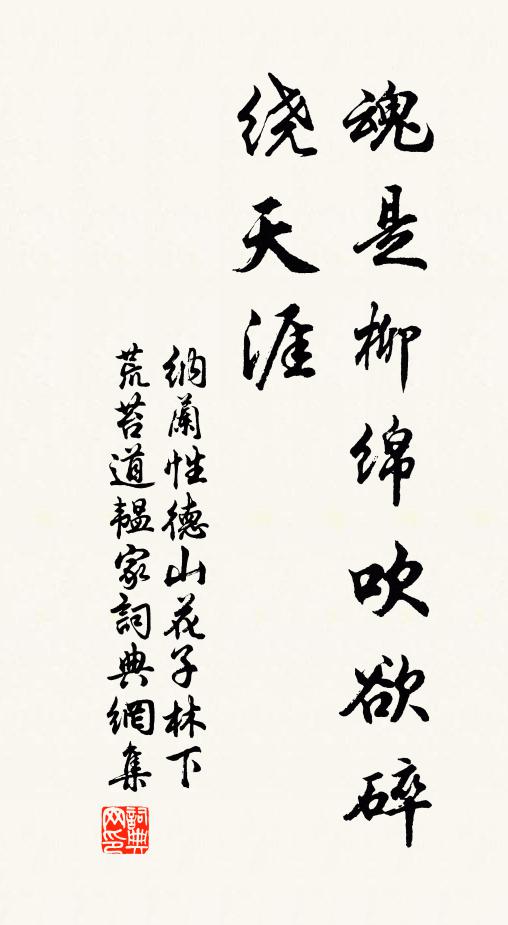 魂是柳绵吹欲碎
绕天涯
纳兰性德山花子林下
荒苔道韫家詞典網集
詞典网印